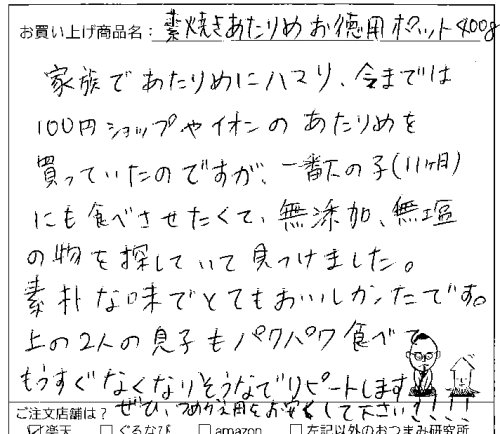 お買い上げ商品名：素焼きあたりめお徳用ポケット400g
家族であたりめにハマり、今までは
100円ショップやイオンのあたりめを
買っていたのですが、一番下の子(11ヶ月)
にも食べさせたくて、無添加、無塩
の物を探していて見つけました。
素朴な味でとてもおいしかったです。
上の2人の息子もパクパク食べて
もうすぐなくなりそうなでリピートします!!
ご注文店舗は？ ぜひ、つめかえ用をお安くして下さい!!!!
☑楽天 □ぐるなび □amazon □左記以外のおつまみ研究所